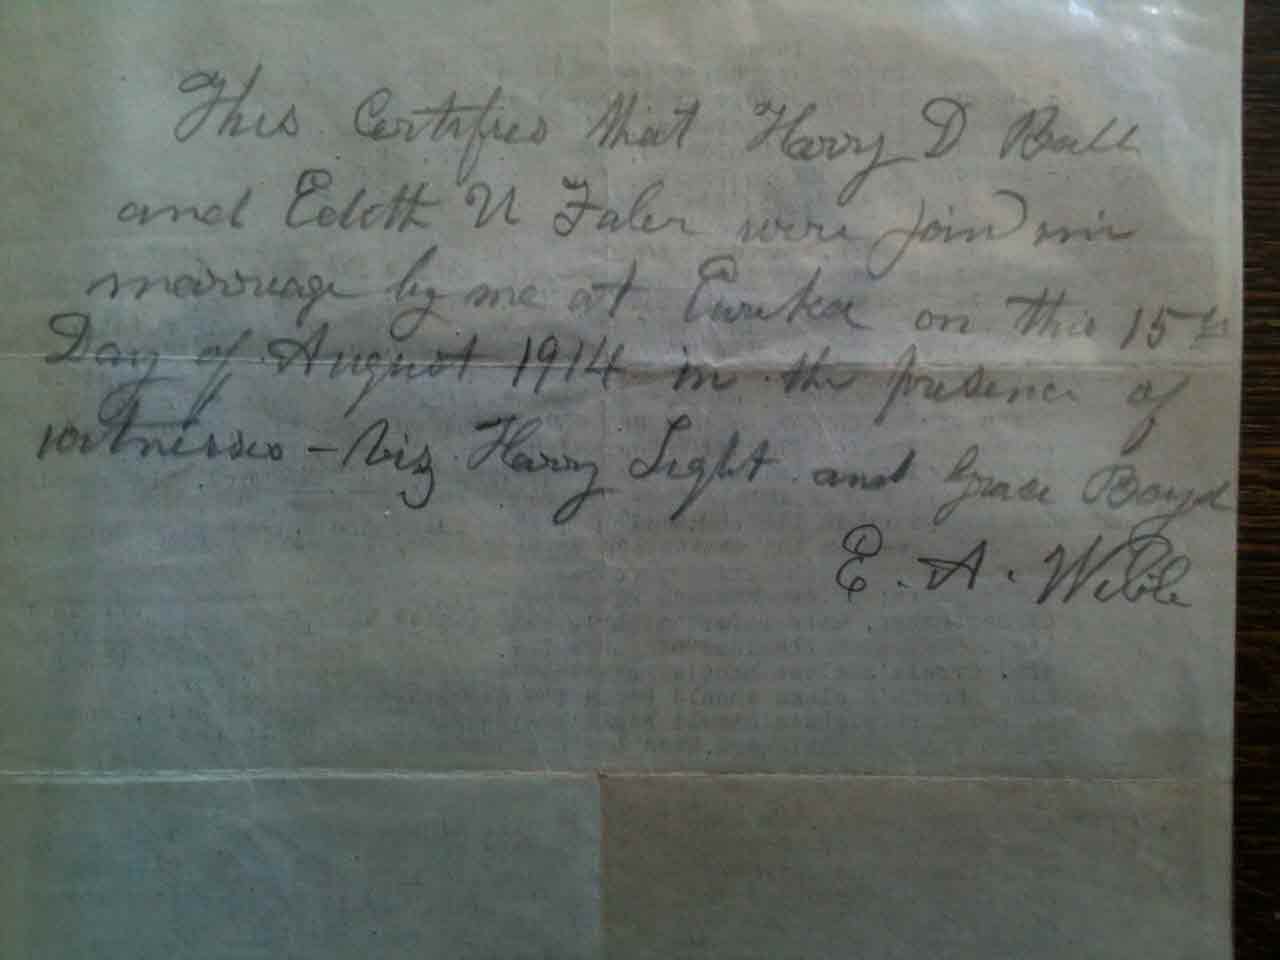 This Certifies that Harry D Ball
and Edith N Faler were join in
marriage by me at Eureka on this 15th
Day of August 1914 in the presence of
witnesses - Viz Harry Light and Grace Boyd
E. A. Wible